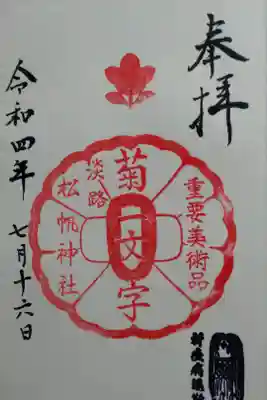 奉拝
重要美術品
菊一文字
淡路
松帆神社
令和四年
七月十六日